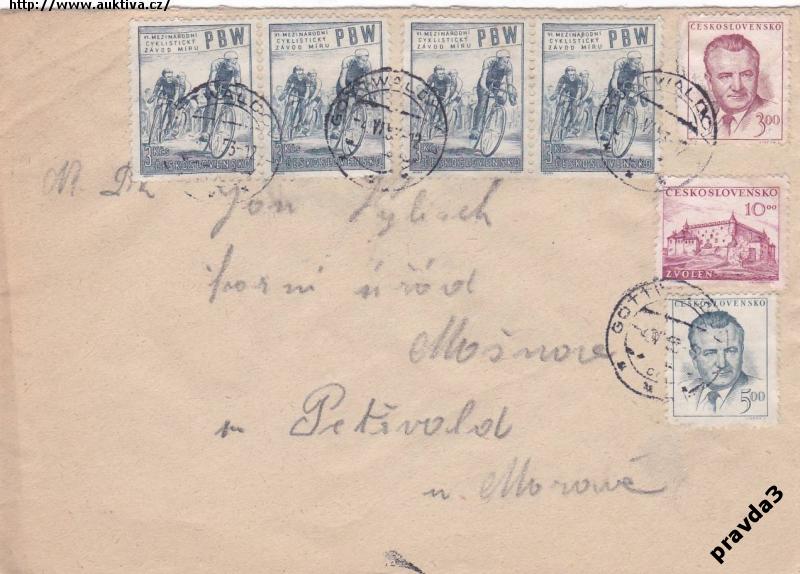 http://www.auktiva.cz/
VI. MEZINÁRODNÍ CYKLISTICKÝ ZÁVOD MÍRU PBW
3 Kčs ČESKOSLOVENSKO
VI. MEZINÁRODNÍ CYKLISTICKÝ ZÁVOD MÍRU PBW
3 Kčs ČESKOSLOVENSKO
VI. MEZINÁRODNÍ CYKLISTICKÝ ZÁVOD MÍRU PBW
3 Kčs ČESKOSLOVENSKO
VI. MEZINÁRODNÍ CYKLISTICKÝ ZÁVOD MÍRU PBW
3 Kčs ČESKOSLOVENSKO
ČESKOSLOVENSKO
3.00
GOTTWALDOV
ČESKOSLOVENSKO
10.00
ZVOLEN
ČESKOSLOVENSKO
5.00
Jan
úřad
Mošnov
Petřvald
u Moravě
pravda3